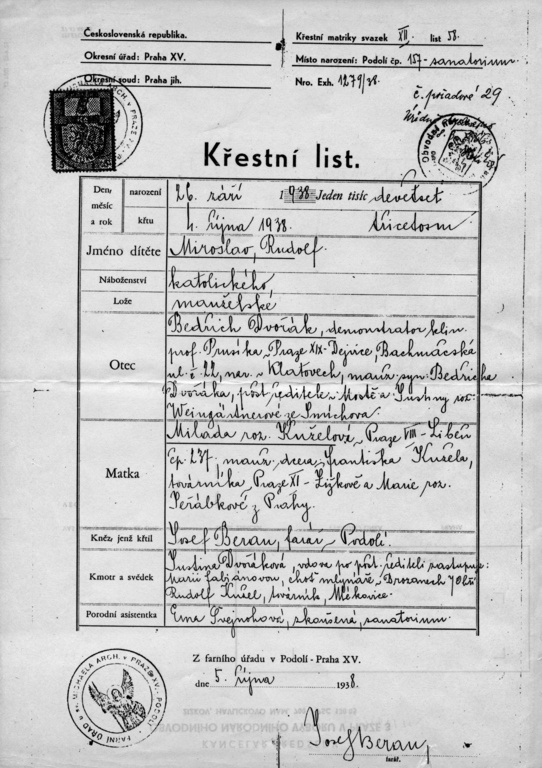 Československá republika.
Okresní úřad: Praha XV.
Okresní soud: Praha jih.
Křestní matriky svazek XII. list 58.
Místo narození: Podolí čp. 157 - sanatorium
Nro. Exh. 1279/38.
č. pořadové 29
Křestní list.
Den, měsíc a rok
narození 26. září 1938 Jeden tisíc devětset
křtu 4. října 1938. třicetosm
Jméno dítěte Miroslav, Rudolf.
Náboženství katolického,
Lože manželské
Otec
Bedřich Dvořák, demonstrator klin.
prof. Prusíka v Praze XIX-Dejvice, Bachmačská
ul. č. 22, nar. v Klatovech, manž. syn: Bedřicha
Dvořáka, pošt. ředitele v Mostě a Justiny roz.
Weingärtnerové ze Smíchova.
Matka
Milada roz. Kuželová v Praze VIII - Libeň
čp. 237. manž. dcera Františka Kužela,
továrníka v Praze XI - Žižkově a Marie roz.
Jeřábkové z Prahy.
Kněz, jenž křtil Josef Beran, farář v Podolí.
Kmotr a svědek
Justina Dvořáková, vdova po pošt. řediteli zastupuje:
Marii Fabiánovou, choť mlynáře v Brozanech
Rudolf Kužel, továrník,
Porodní asistentka Ema zkoušená, sanatorium.
Z farního úřadu v Podolí - Praha XV.
dne 5. října 1938.
Josef Beran,
farář.